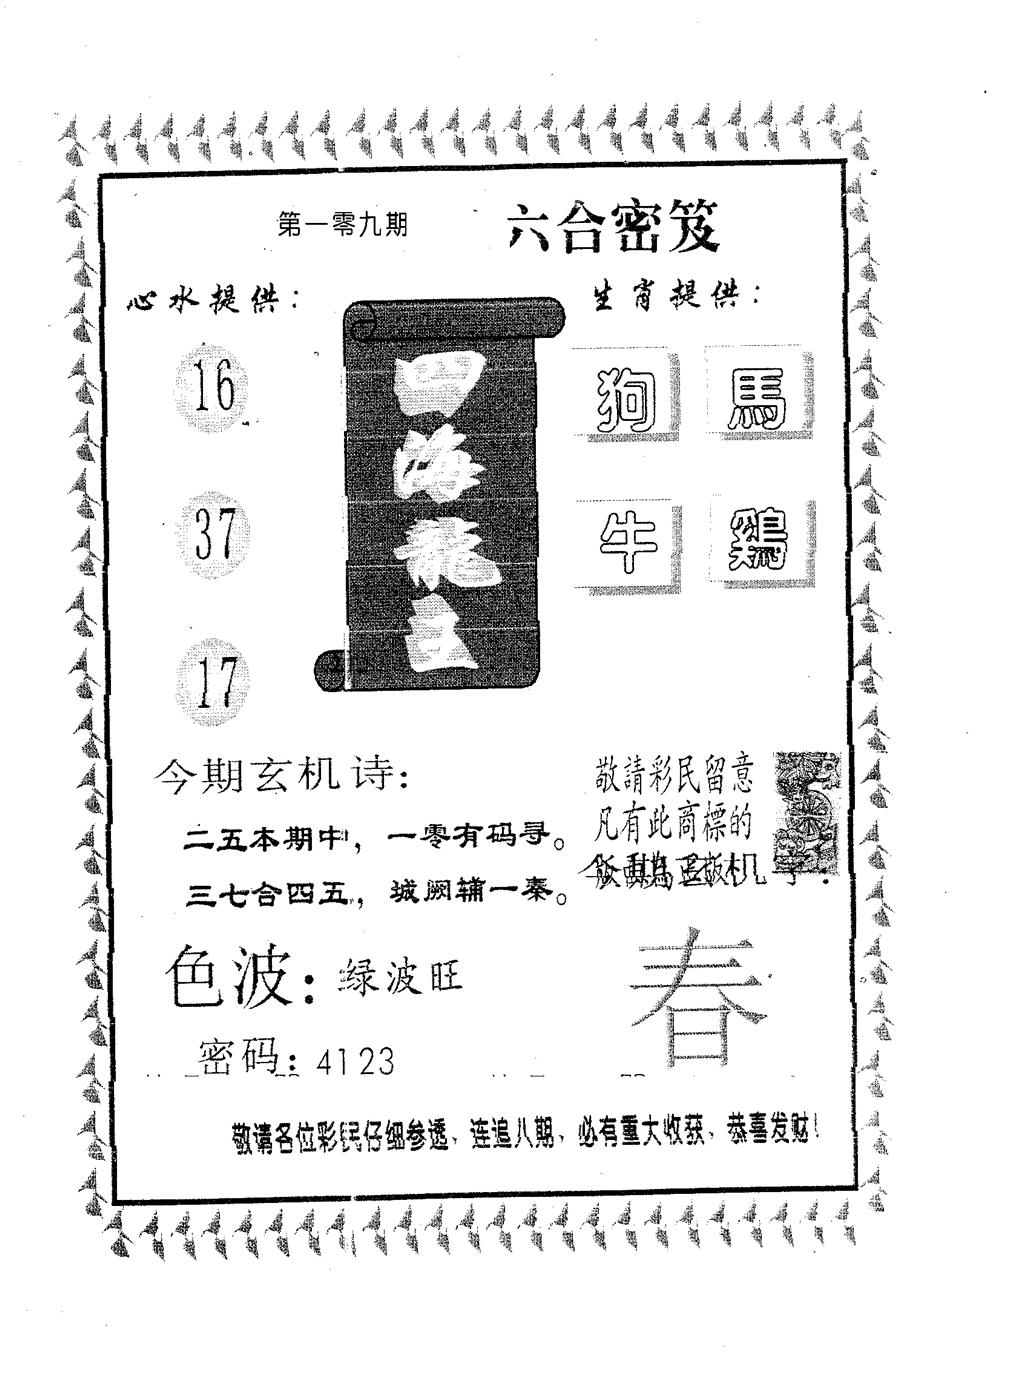 第一零九期
六合密笈
心水提供：
生肖提供：
16
37
17
四海龍王
狗
馬
牛
鷄
今期玄机诗：
二五本期中，一零有码寻。
三七合四五，城阙辅一秦。
敬請彩民留意
凡有此商標的
色波：绿波旺
春
密码：4123
敬请各位彩民仔细参透、连追八期、必有重大收获、恭喜发财！